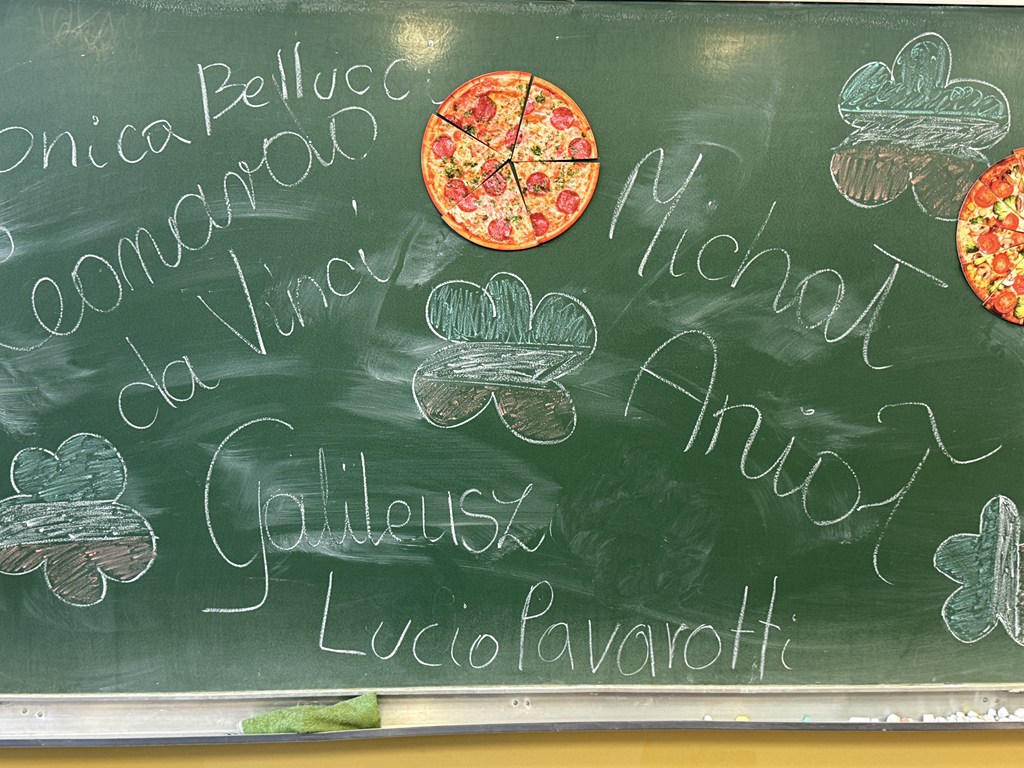 onica Bellucci
Leonardo
da Vinci
Michał
Anioł
Galileusz
Lucio Pavarotti